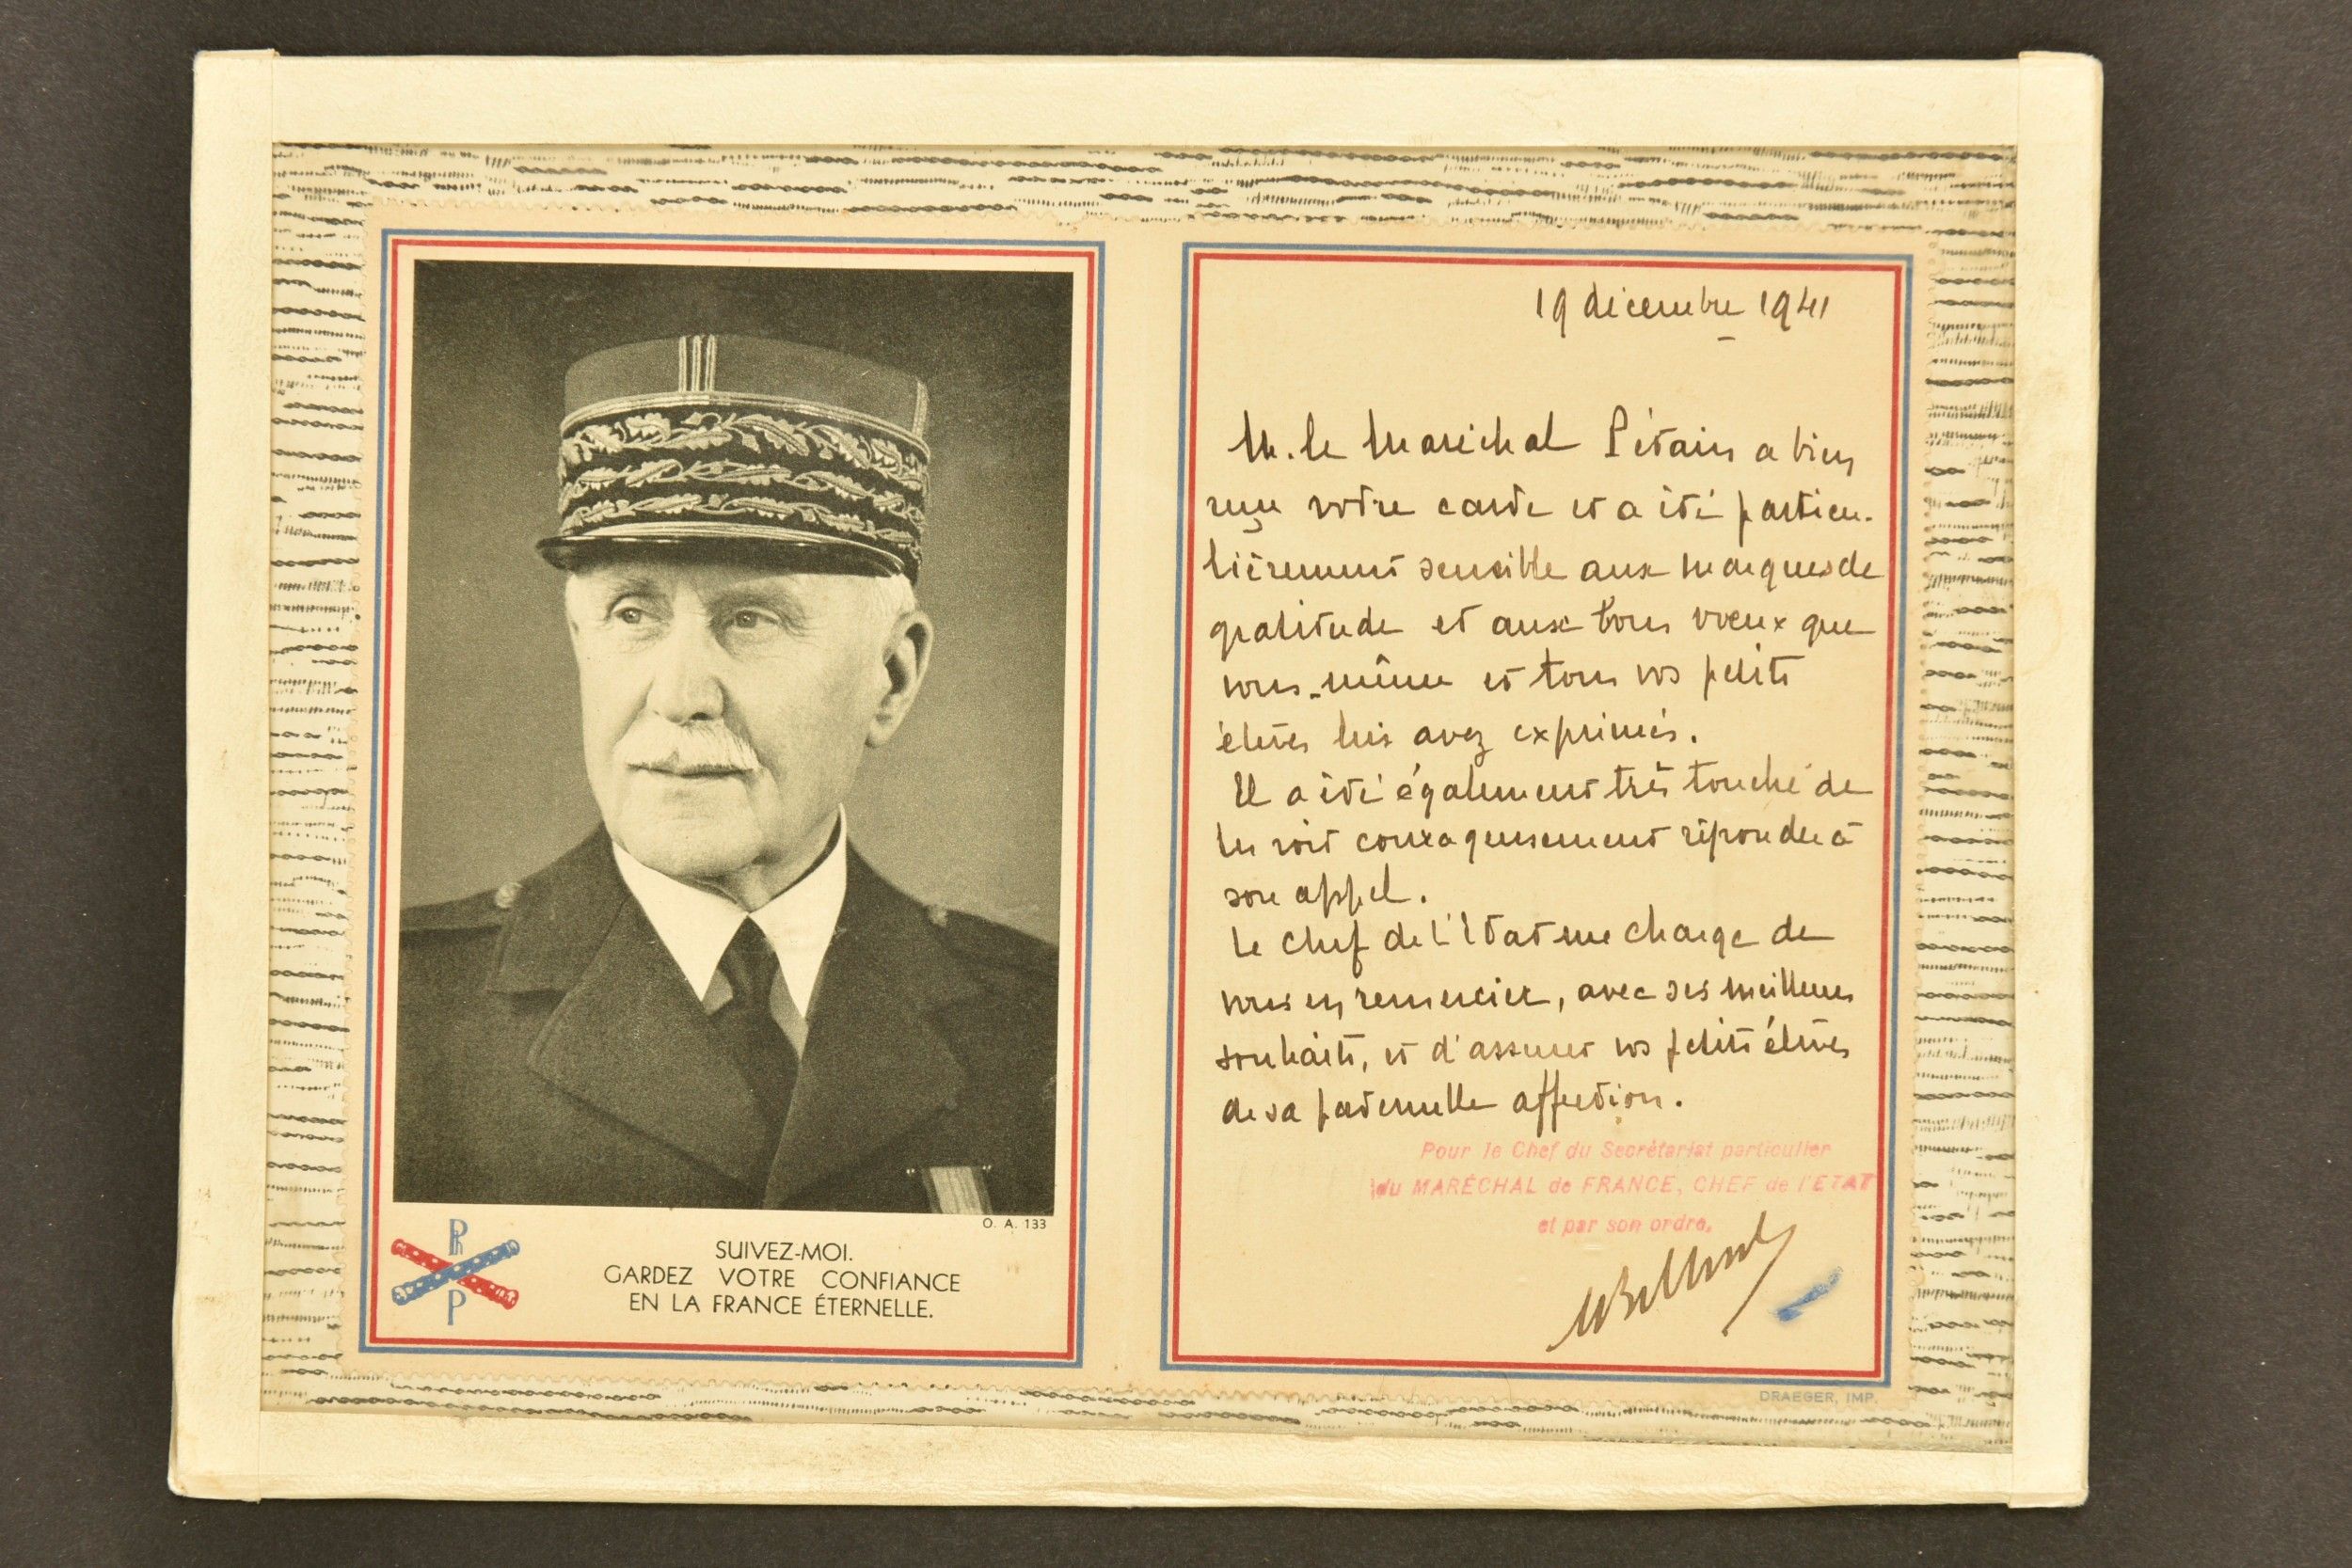 O. A. 133
Ph
P
SUIVEZ-MOI.
GARDEZ VOTRE CONFIANCE
EN LA FRANCE ÉTERNELLE.
19 décembre 1941
M. le Maréchal Pétain a bien
reçu votre carte et a été particu-
lièrement sensible aux marques de
gratitude et aux bons voeux que
vous-même et tous vos petits
élèves lui avez exprimés.
Il a été également très touché de
les voir courageusement répondre à
son appel.
Le Chef de l'Etat me charge de
vous en remercier, avec ses meilleurs
souhaits, et d'assurer vos petits élèves
de sa paternelle affection.
Pour le Chef du Secrétariat particulier
du MARÉCHAL de FRANCE, CHEF de l'ETAT
et par son ordre,
DRAEGER, IMP.